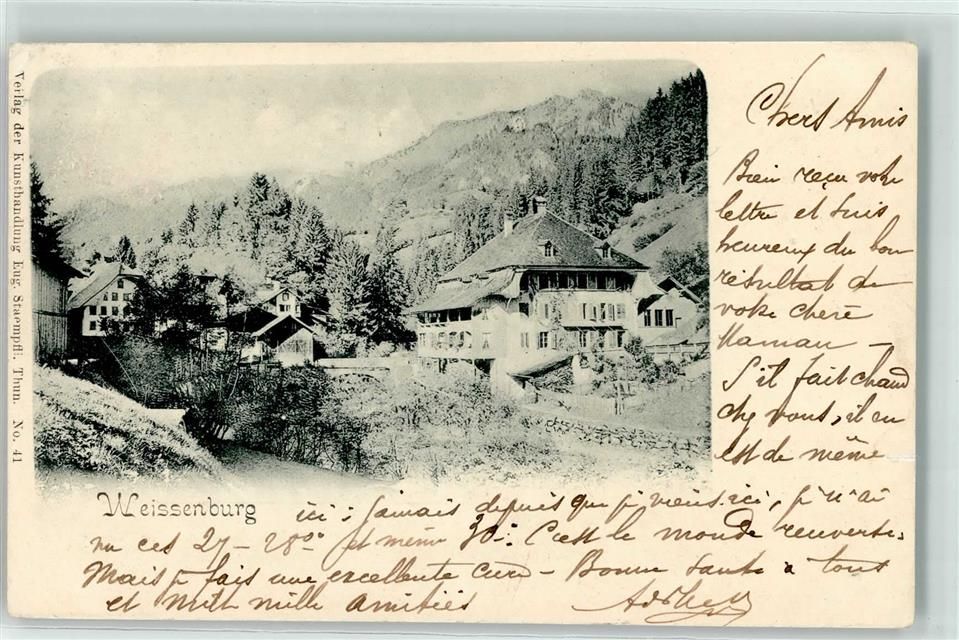 Verlag der Kunsthandlung Eug. Staempfli. Thun. No. 41
Weissenburg
Chers Amis
Bien reçu votre
lettre et suis
heureux du bon
résultat de
votre chère
Maman –
S'il fait chaud
chez vous, il en
est de même
ici; jamais depuis que je viens ici, je n'ai
vu ces 27 – 28° et même 30°. C'est le monde renversé.
Mais je fais une excellente cure – Bonne santé à tous
et mille mille amitiés